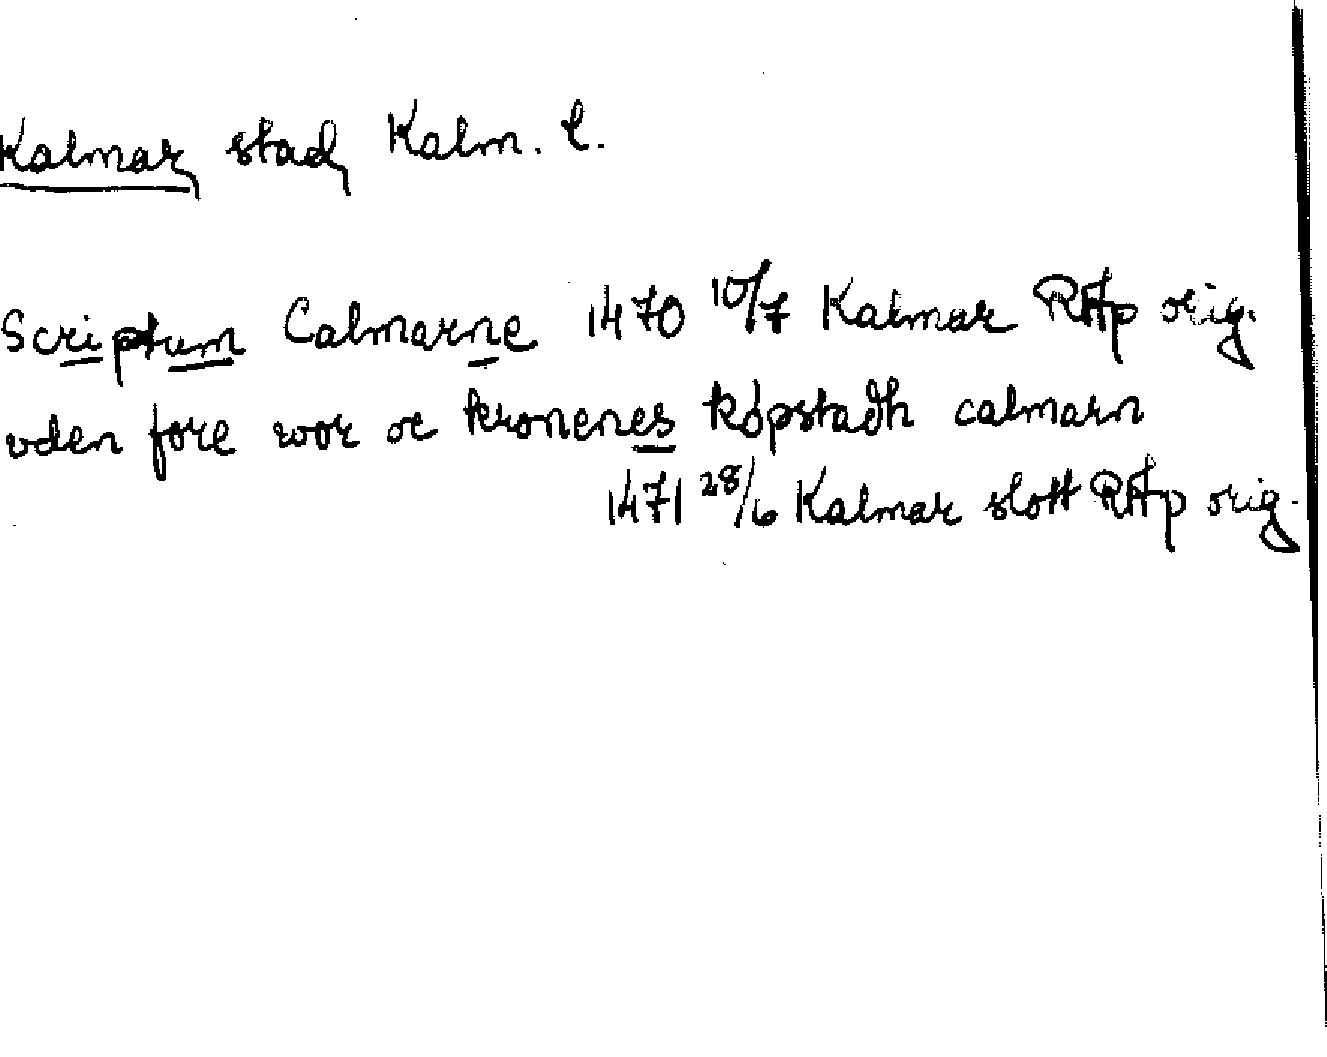 Kalmar stad, Kalm. l.
Scriptum Calmarne 1470 10/7 Kalmar RAp orig.
vden fore wor oc kronenes köpstadh calmarn
1471 28/6 Kalmar slott RAp orig.